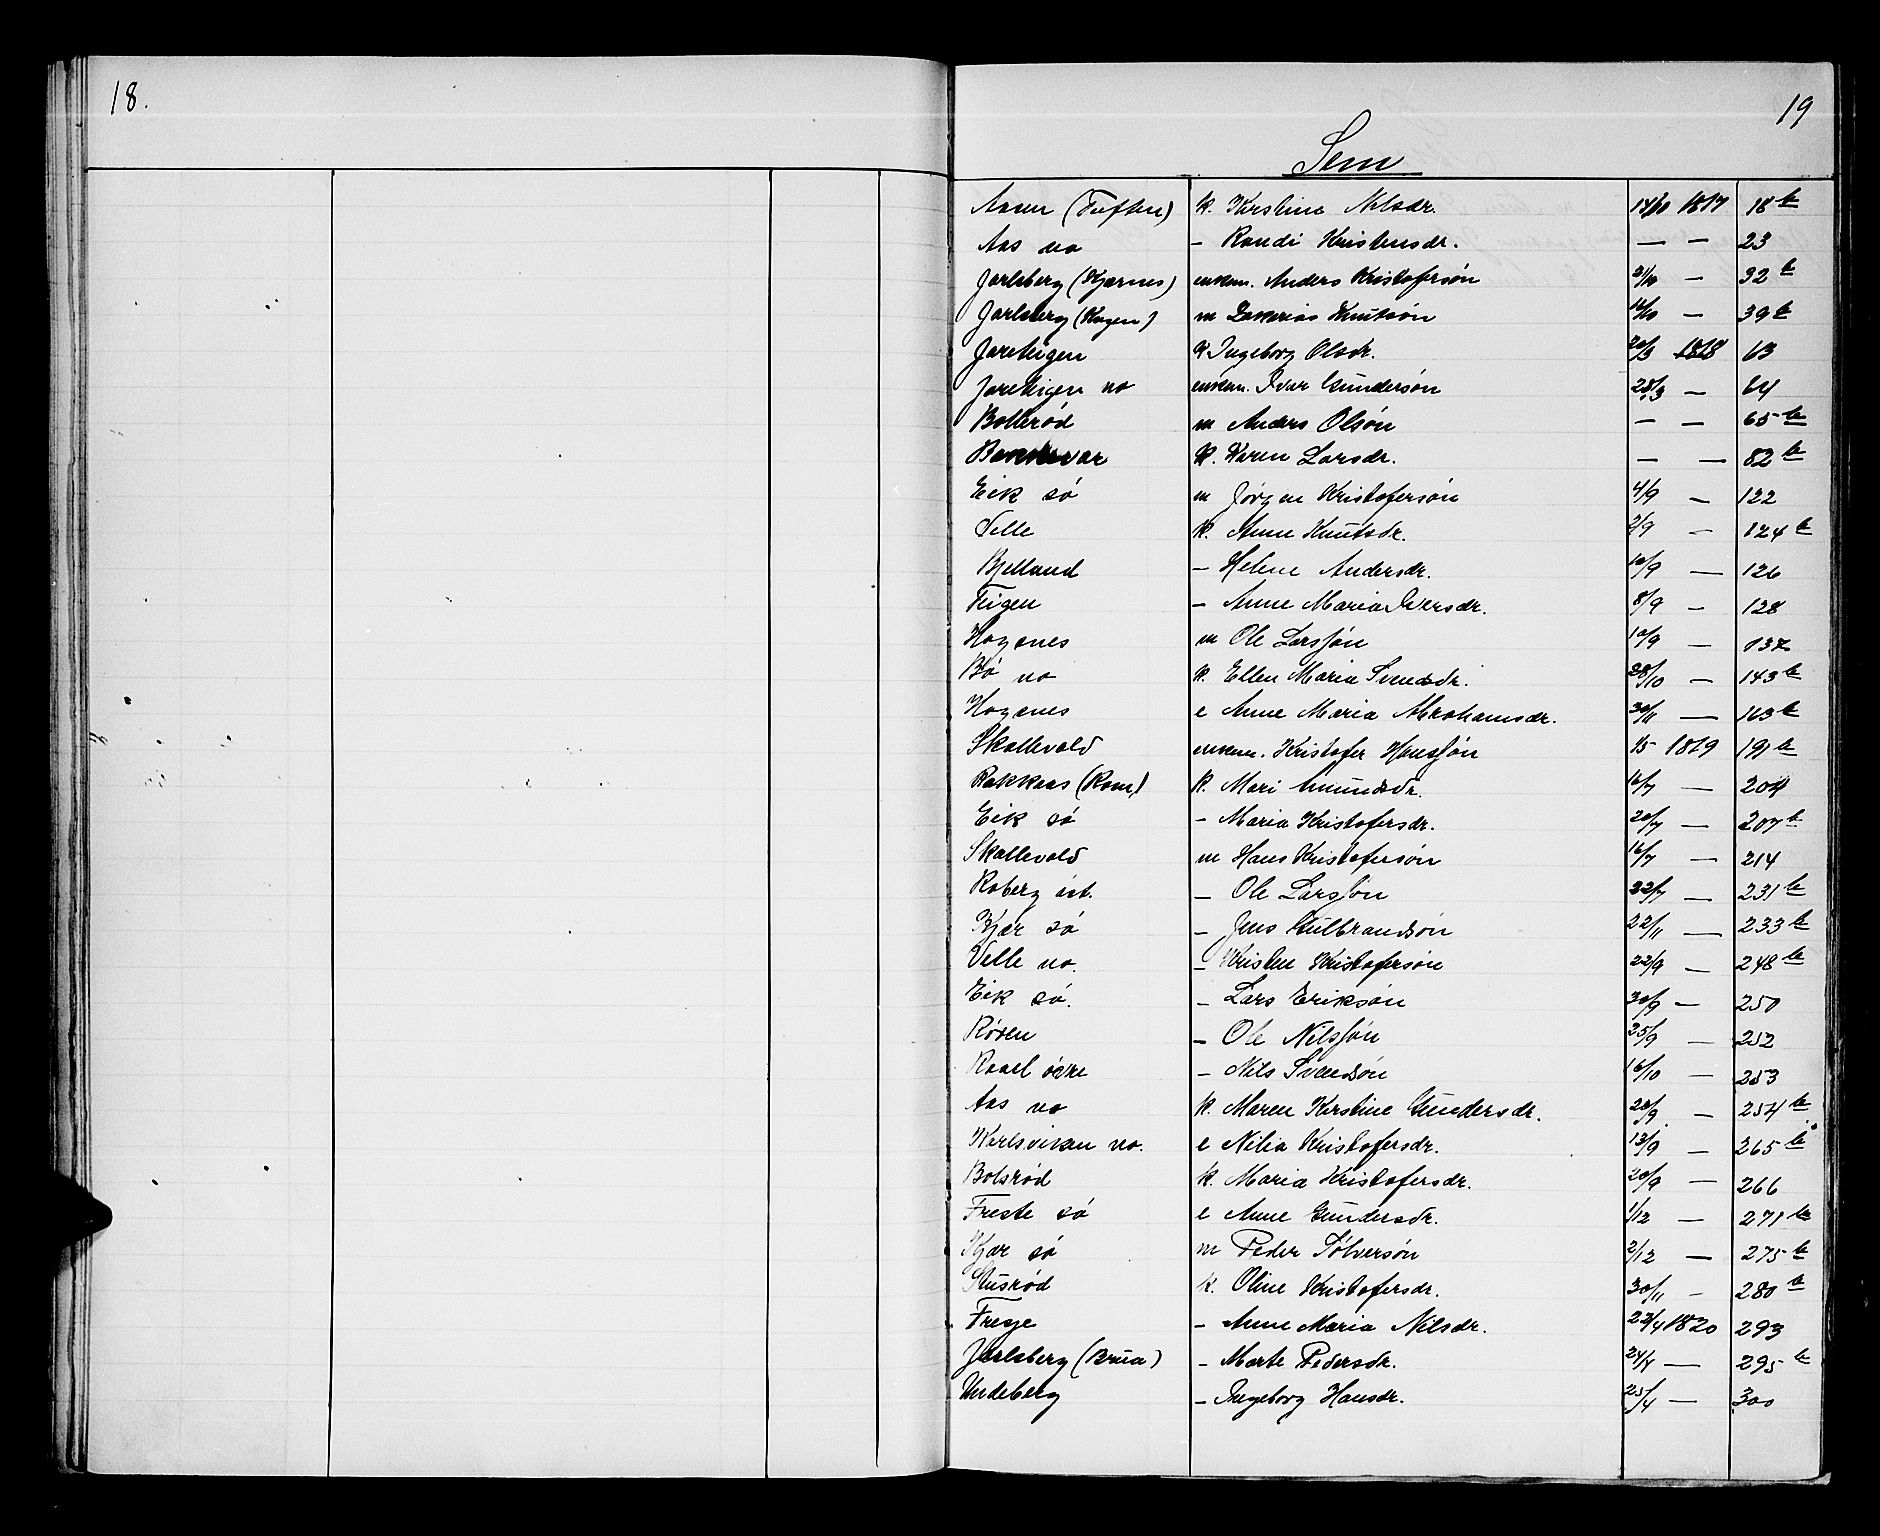 18.
19
Sem
Aasen (Tuften) k. Kirstine Nilsdr. 14/10 1817 18 b
Aas no - Randi Kristensdr. — — 23
Jarlsberg (Kjærnes) enkem. Anders Kristofersøn 31/10 — 32 b
Jarlsberg (Kagen) m Zakarias Knutsøn 16/10 — 39 b
Jareteigen k Ingeborg Olsdr. 20/3 1818 63
Jareteigen no enkem. Ivar Gundersøn 28/3 — 64
Bollerød m Anders Olsøn — — 65 b
k. Karen Larsdr. — — 82 b
Eik sø m Jørgen Kristofersøn 4/9 — 122
Velle k. Anne Knutsdr. 2/9 — 124 b
Bjelland - Helene Andersdr. 10/9 — 126
Teigen - Anne Maria Iversdr. 8/9 — 128
Hogsnes m Ole Larssøn 10/9 — 137
Bø no k. Ellen Maria Svendsdr. 28/10 — 143 b
Hogsnes e Anne Maria Abrahamsdr. 30/11 — 163 b
Skallevold enkem. Kristofer Hanssøn 1/5 1819 191 b
Rakkaas (Ram) k. Mari Amundsdr. 16/7 — 204
Eik sø - Maria Kristofersdr. 20/7 — 207 b
Skallevold m Hans Kristofersøn 16/7 — 214
Roberg øst. - Ole Larssøn 22/7 — 231 b
Kjær sø - Jens Gulbrandsøn 22/11 — 233 b
Velle no. - Kristen Kristofersøn 22/9 — 248 b
Eik sø. - Lars Eriksøn 30/9 — 250
Røren - Ole Nilssøn 25/9 — 252
Raael øvre - Nils Svendsøn 16/10 — 253
Aas no k. Maren Kirstine Gundersdr. 20/9 — 254 b
Karlsvikan no. e Nilia Kristofersdr. 13/9 — 265 b
Bolsrød k. Maria Kristofersdr. 20/9 — 266
Freste sø e Anne Gundersdr. 1/12 — 271 b
Kjær sø m Peder Sølversøn 2/12 — 275 b
Stusrød k. Oline Kristofersdr. 30/11 — 280 b
Frege - Anne Maria Nilsdr. 22/4 1820 293
Jarlsberg (Brua) - Marte Pedersdr. 24/4 — 295 b
Undeberg - Ingeborg Hansdr. 25/4 — 300